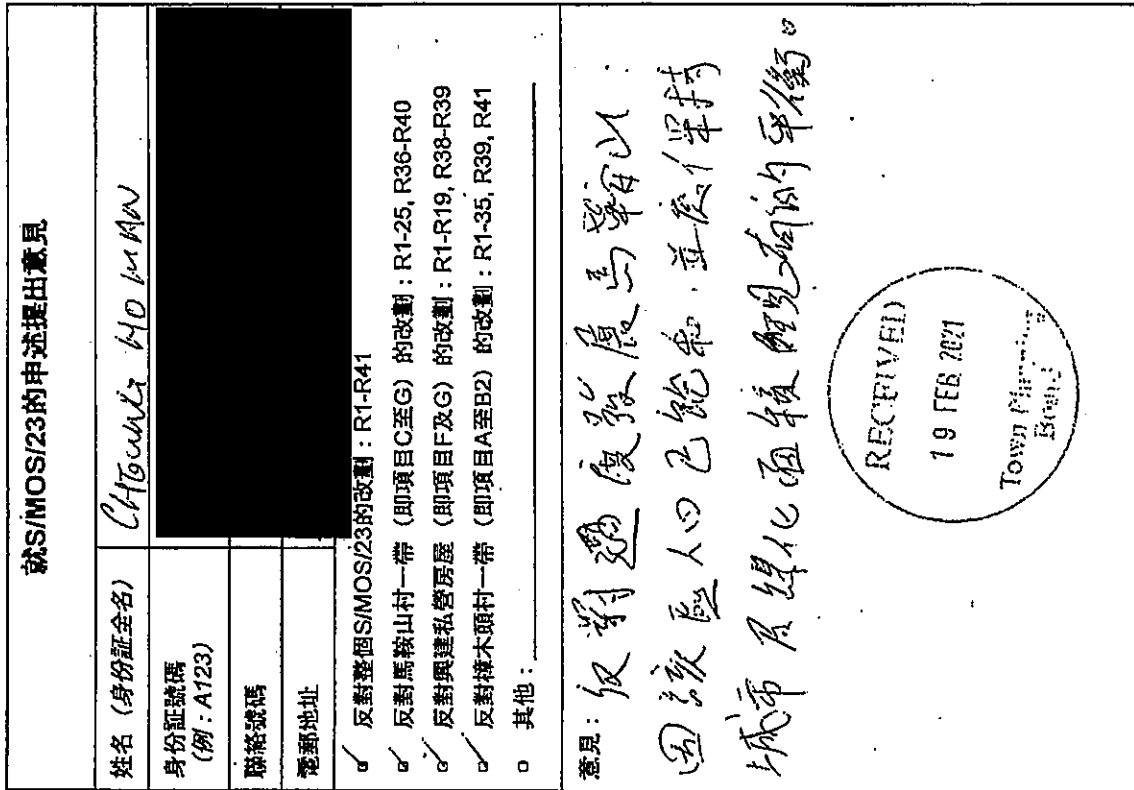 就S/MOS/23的申述提出意見
姓名（身份証全名）
身份証號碼
(例：A123)
聯絡號碼
電郵地址
反對整個S/MOS/23的改劃：R1-R41
反對馬鞍山村一帶（即項目C至G）的改劃：R1-25, R36-R40
反對興建私營房屋（即項目F及G）的改劃：R1-R19, R38-R39
反對樟木頭村一帶（即項目A至B2）的改劃：R1-35, R39, R41
其他：
意見：反對過度發展馬鞍山
因該區人口已飽和. 並應保持
城市及綠化面積的平衡。
RECEIVED
19 FEB 2021
Town Planning
Board